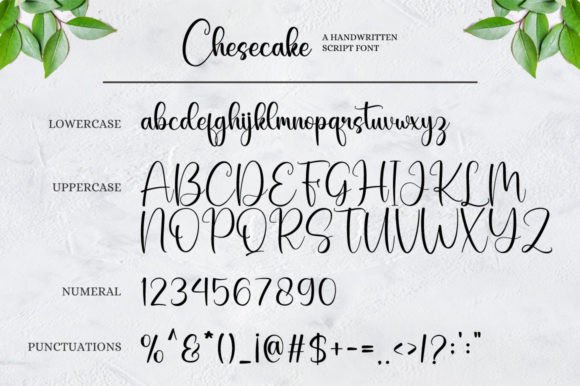 Chesecake
A HANDWRITTEN
SCRIPT FONT
LOWERCASE
abcdefghijklmnopqrstuvwxyz
UPPERCASE
ABCDEFGHIJKLM
NOPQRSTUVWXYZ
NUMERAL
1234567890
PUNCTUATIONS
%^&*()_¡@#$+-=,.<>/?;':"